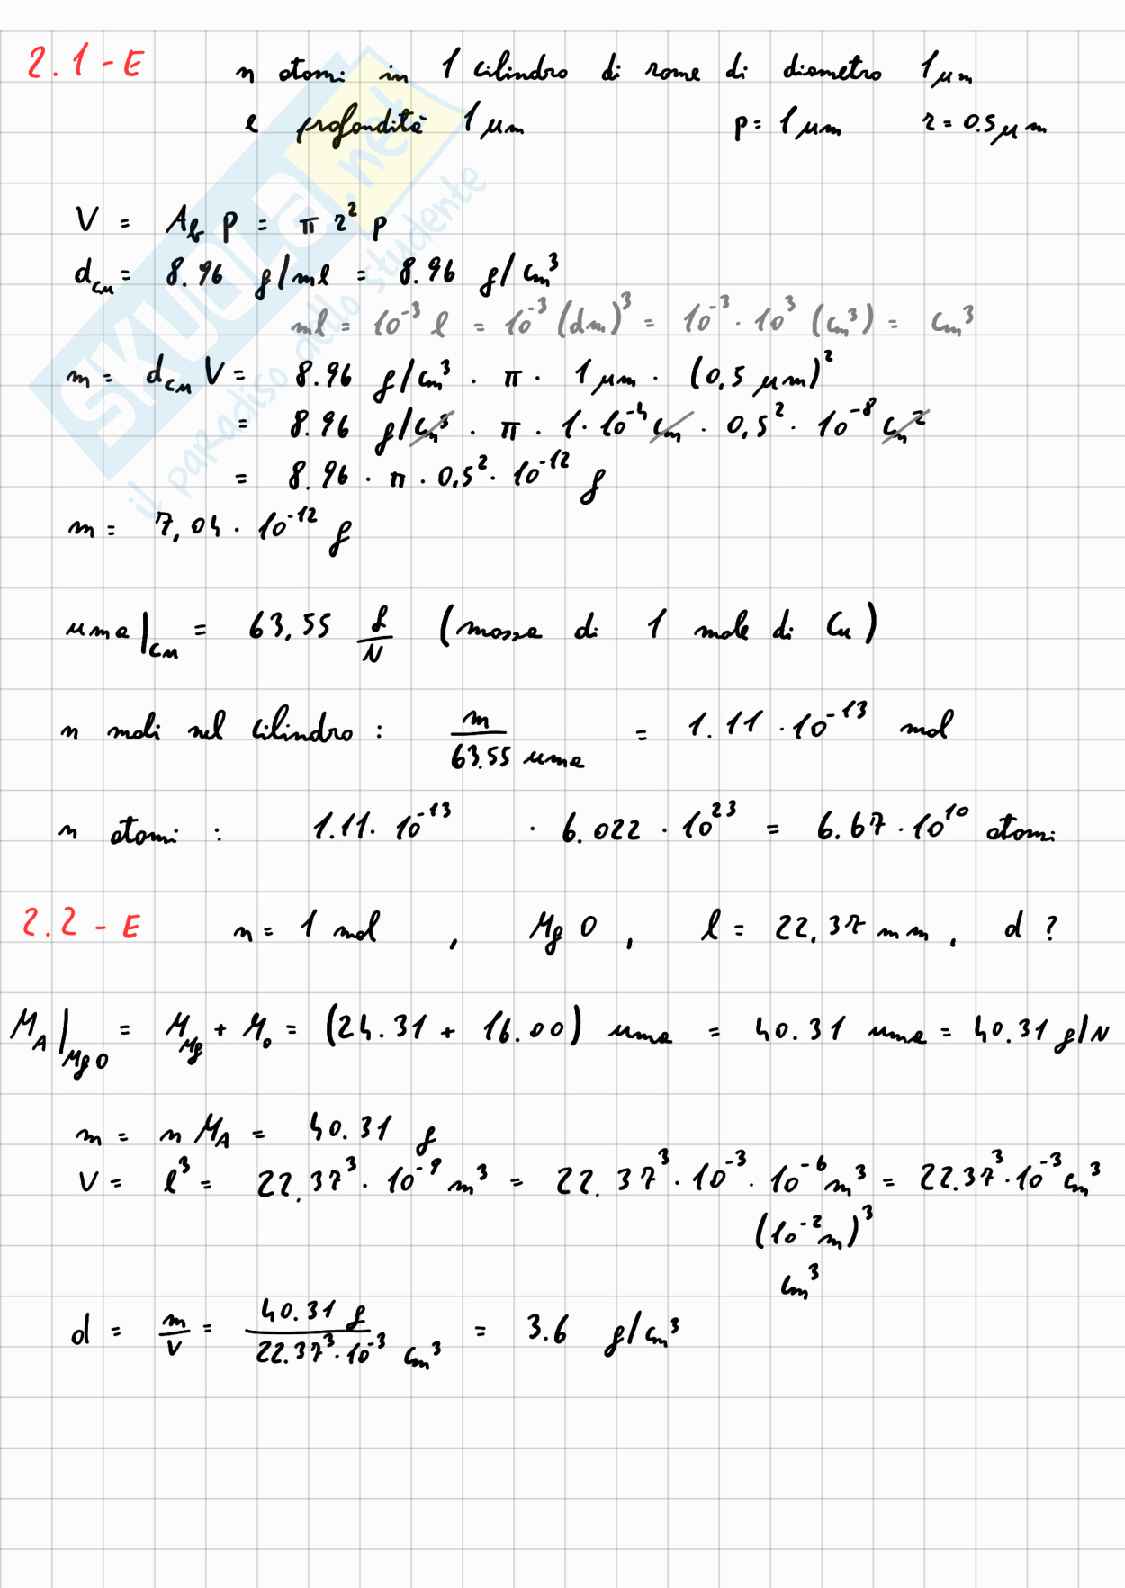 2.1-E n atomi in 1 cilindro di rame di diametro 1 μm
e profondità 1 μm p = 1 μm r = 0.5 μm
V = A_b p = π r² p
d_Cu = 8.96 g/ml = 8.96 g/cm³
ml = 10⁻³ l = 10⁻³ (dm)³ = 10⁻³ · 10³ (cm³) = cm³
m = d_Cu V = 8.96 g/cm³ · π · 1 μm · (0,5 μm)²
= 8.96 g/cm³ · π · 1 · 10⁻⁴ cm · 0,5² · 10⁻⁸ cm²
= 8.96 · π · 0,5² · 10⁻¹² g
m = 7,04 · 10⁻¹² g
uma|_Cu = 63,55 g/N (massa di 1 mole di Cu)
n moli nel cilindro : m/63.55 uma = 1.11 · 10⁻¹³ mol
n atomi : 1.11 · 10⁻¹³ · 6.022 · 10²³ = 6.67 · 10¹⁰ atomi
2.2-E n = 1 mol , MgO , l = 22,37 mm , d ?
M_A|_MgO = M_Mg + M_O = (24.31 + 16.00) uma = 40.31 uma = 40.31 g/N
m = n M_A = 40.31 g
V = l³ = 22,37³ · 10⁻⁹ m³ = 22,37³ · 10⁻³ · 10⁻⁶ m³ = 22.37³ · 10⁻³ cm³
(10⁻² m)³
cm³
d = m/V = 40.31 g / 22.37³ · 10⁻³ cm³ = 3.6 g/cm³
SKUOLA.net
il paradiso dello studente